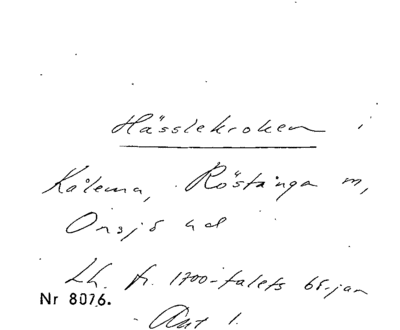 Hässlekroken i
Kålema, Röstånga m,
Onsjö hd
Lh. fr. 1700-talets
Nr 8076.
Ant 1.